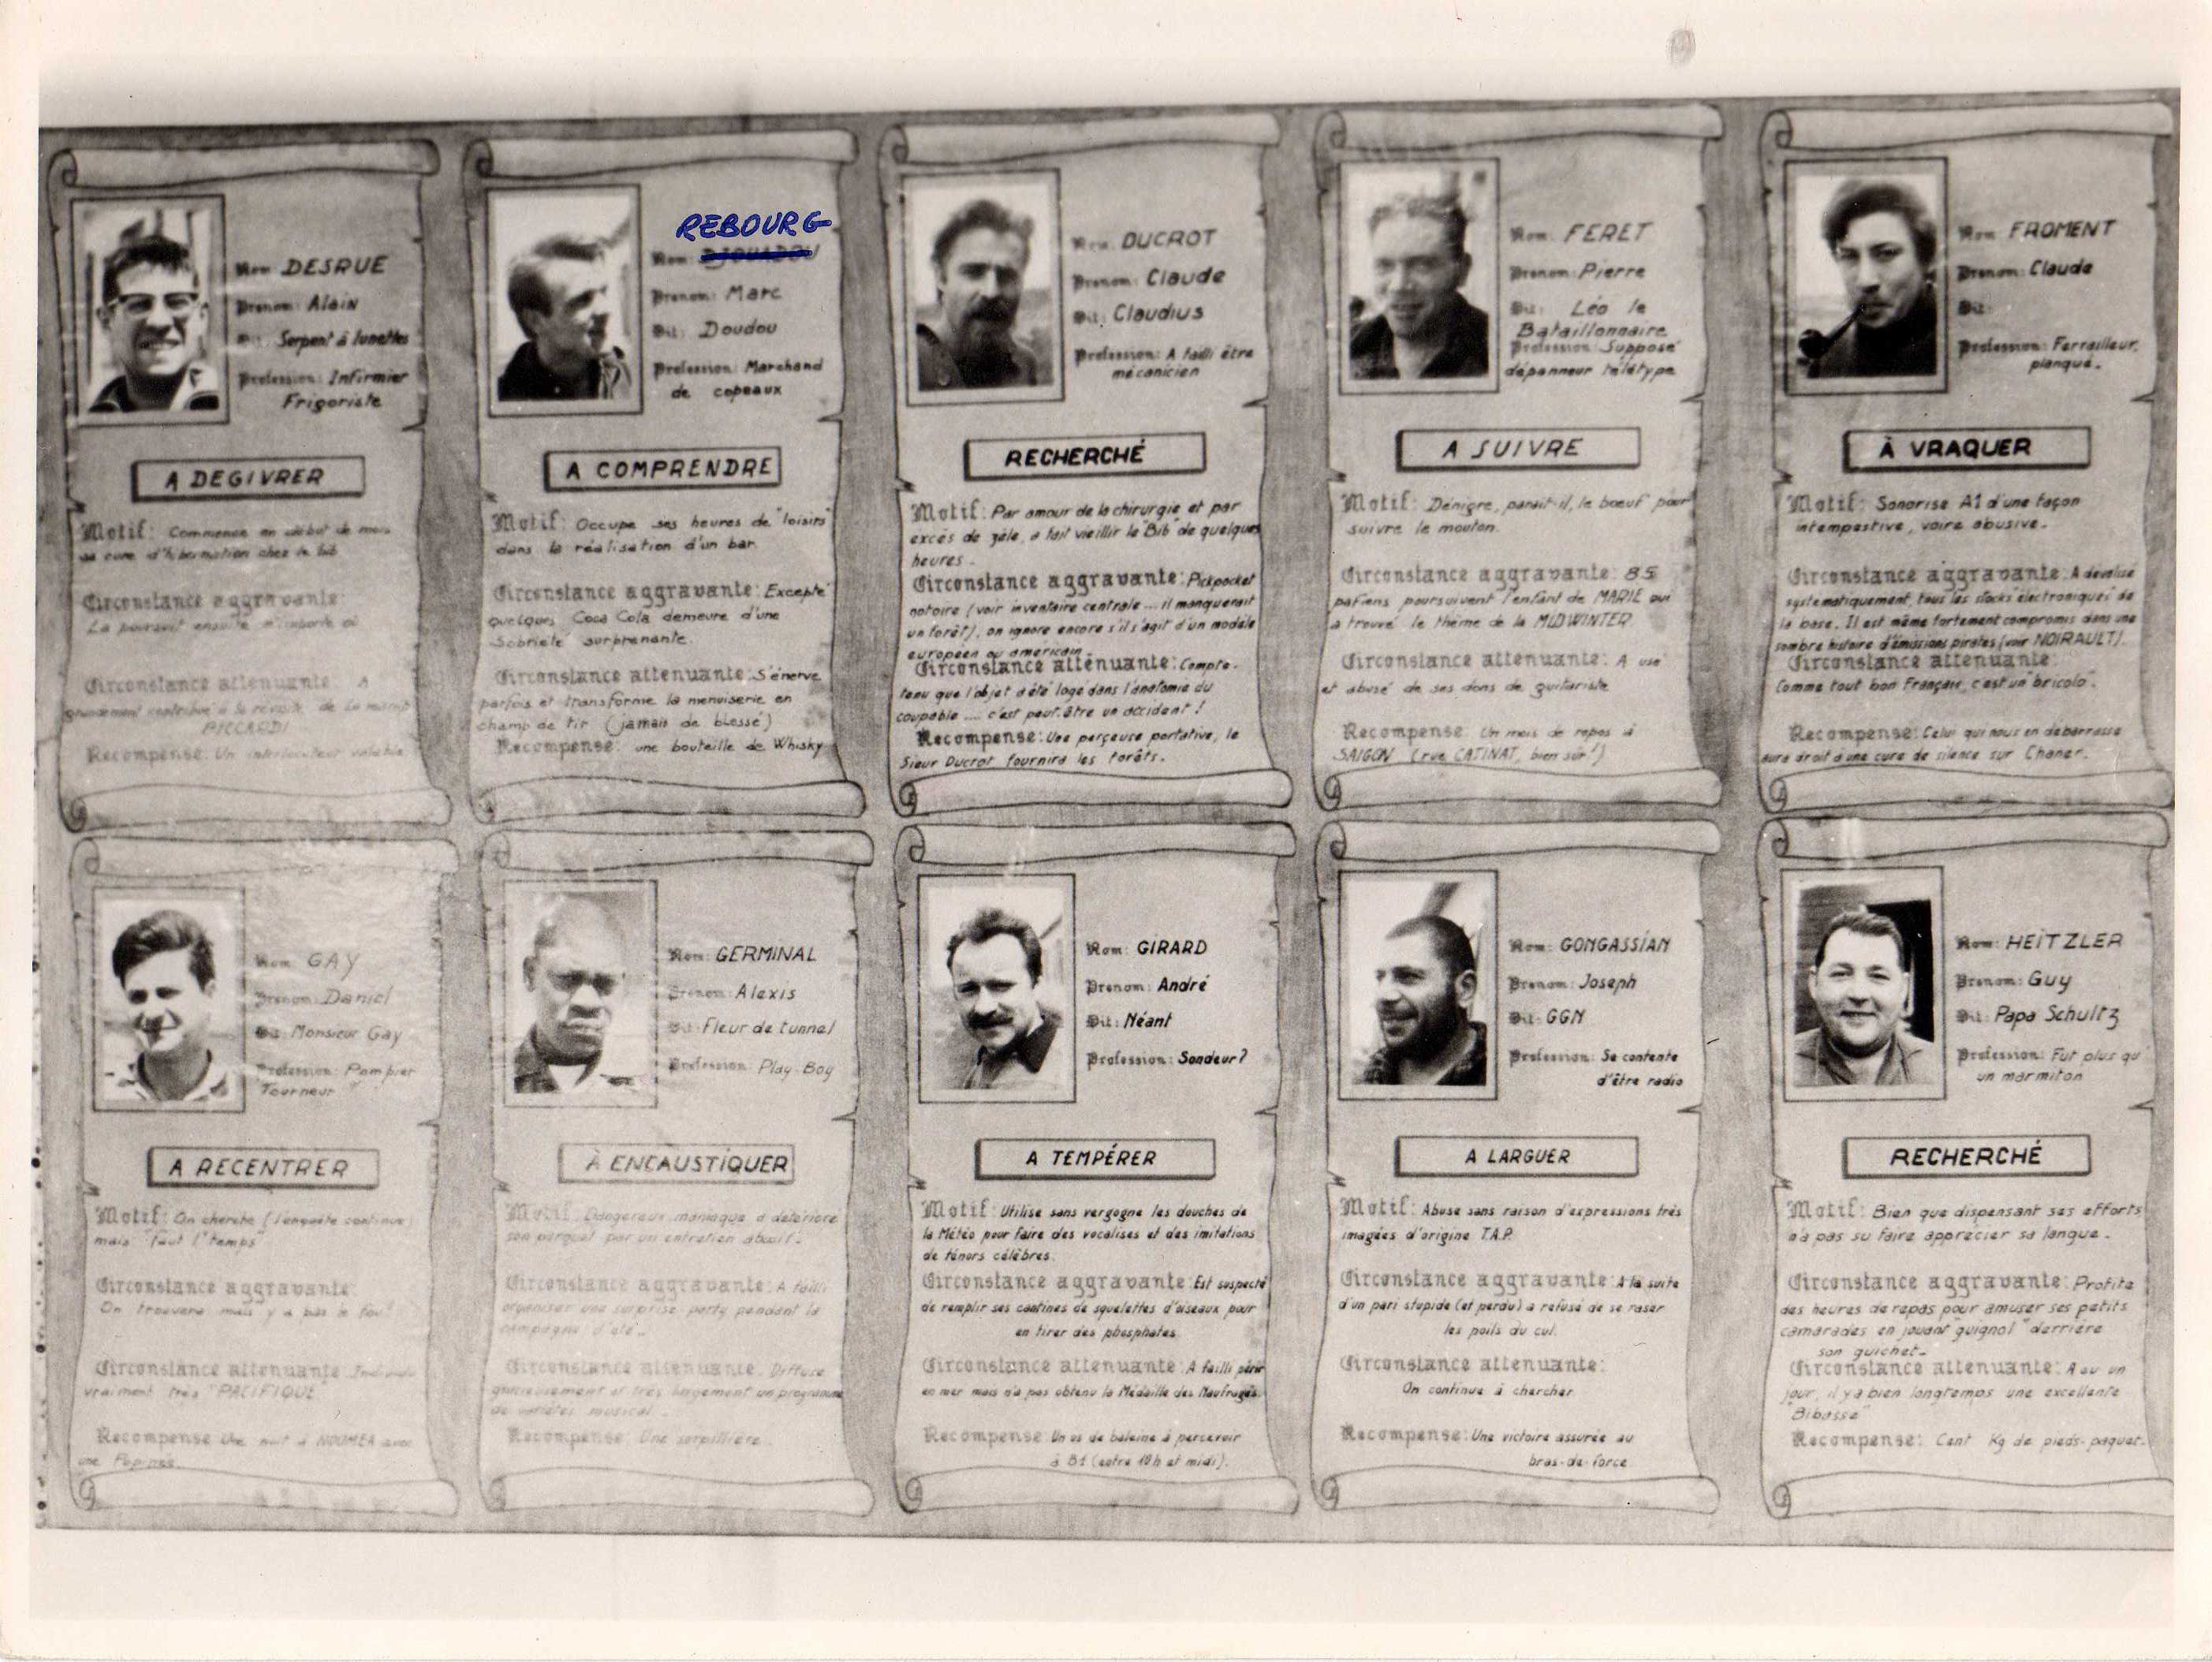 Nom: DESRUE
Prenom: Alain
Dit: Serpent à lunettes
Profession: Infirmier
Frigoriste
A DEGIVRER
Motif: Commence en début de mois
sa cure d'hibernation chez le bib
Circonstance aggravante:
La poursuit ensuite n'importe où
Circonstance attenuante A
grandement contribué à la révolte de
RICCARDI
Recompense: Un interlocuteur valable
REBOURG
Nom: DJOUADOU
Prenom: Marc
Dit: Doudou
Profession: Marchand
de copeaux
A COMPRENDRE
Motif: Occupe ses heures de "loisirs"
dans la réalisation d'un bar.
Circonstance aggravante: Excepté
quelques Coca Cola demeure d'une
Sobriété surprenante.
Circonstance attenuante: S'énerve
parfois et transforme la menuiserie en
champ de tir (jamais de blessé)
Recompense: une bouteille de Whisky
Nom: DUCROT
Prenom: Claude
Dit: Claudius
Profession: A failli être
mécanicien
RECHERCHÉ
Motif: Par amour de la chirurgie et par
excès de zèle, a fait vieillir le "Bib" de quelques
heures.
Circonstance aggravante: Pickpocket
notoire (voir inventaire centrale ... il manquerait
un forêt), on ignore encore s'il s'agit d'un modèle
européen ou américain.
Circonstance attenuante: Compte-
tenu que l'objet a été logé dans l'anatomie du
coupable .... c'est peut-être un accident !
Recompense: Une perçeuse portative, le
Sieur Ducrot fournira les forêts.
Nom: FERET
Prenom: Pierre
Dit: Léo le
Bataillonnaire
Profession: Supposé
dépanneur télétype
A SUIVRE
Motif: Dénigre, parait-il, le bœuf pour
suivre le mouton.
Circonstance aggravante: 85
pafiens poursuivent l'enfant de MARIE qui
a trouvé le thème de la MIDWINTER
Circonstance attenuante: A usé
et abusé de ses dons de guitariste
Recompense: Un mois de repos à
SAIGON (rue CATINAT, bien sûr!)
Nom: FROMENT
Prenom: Claude
Dit:
Profession: Ferrailleur,
planqué.
À VRAQUER
Motif: Sonorise A1 d'une façon
intempestive, voire abusive.
Circonstance aggravante: A dévalisé
systématiquement, tous les stocks électroniques de
la base. Il est même fortement compromis dans une
sombre histoire d'émissions pirates (voir NOIRAULT).
Circonstance attenuante:
Comme tout bon Français, c'est un "bricolo".
Recompense: Celui qui nous en débarrasse
aura droit à une cure de silence sur Chaner.
Nom: GAY
Prenom: Daniel
Dit: Monsieur Gay
Profession: Pompier
Tourneur
A RECENTRER
Motif: On cherche (l'enquête continue)
mais "faut l'temps"
Circonstance aggravante:
On trouvera mais y a pas le feu!
Circonstance attenuante: Individu
vraiment très "PACIFIQUE"
Recompense Une nuit à NOUMÉA avec
une
Nom: GERMINAL
Prenom: Alexis
Dit: Fleur de tunnel
Profession: Play-Boy
À ENCAUSTIQUER
Motif: Dangereux maniaque a détérioré
son parquet par un entretien abusif.
Circonstance aggravante: A failli
organiser une surprise party pendant la
campagne d'été.
Circonstance attenuante: Diffuse
gracieusement et très largement un programme
de variétés musical.
Recompense: Une serpillière.
Nom: GIRARD
Prenom: André
Dit: Néant
Profession: Sondeur?
A TEMPÉRER
Motif: Utilise sans vergogne les douches de
la Météo pour faire des vocalises et des imitations
de ténors célèbres.
Circonstance aggravante: Est suspecté
de remplir ses cantines de squelettes d'oiseaux pour
en tirer des phosphates.
Circonstance attenuante: A failli périr
en mer mais n'a pas obtenu la Médaille des Naufragés.
Recompense: Un os de baleine à percevoir
à B1 (entre 10h et midi).
Nom: GONGASSIAN
Prenom: Joseph
Dit: GGN
Profession: Se contente
d'être radio
A LARGUER
Motif: Abuse sans raison d'expressions très
imagées d'origine T.A.P.
Circonstance aggravante: A la suite
d'un pari stupide (et perdu) a refusé de se raser
les poils du cul.
Circonstance attenuante:
On continue à chercher
Recompense: Une victoire assurée au
bras-de-force
Nom: HEITZLER
Prenom: Guy
Dit: Papa Schultz
Profession: Fut plus qu'
un marmiton
RECHERCHÉ
Motif: Bien que dispensant ses efforts
n'a pas su faire apprécier sa langue.
Circonstance aggravante: Profite
des heures de repas pour amuser ses petits
camarades en jouant "guignol" derrière
son guichet.
Circonstance attenuante: A eu un
jour, il y a bien longtemps une excellente
"Bibasse"
Recompense: Cent Kg de pieds-paquet.